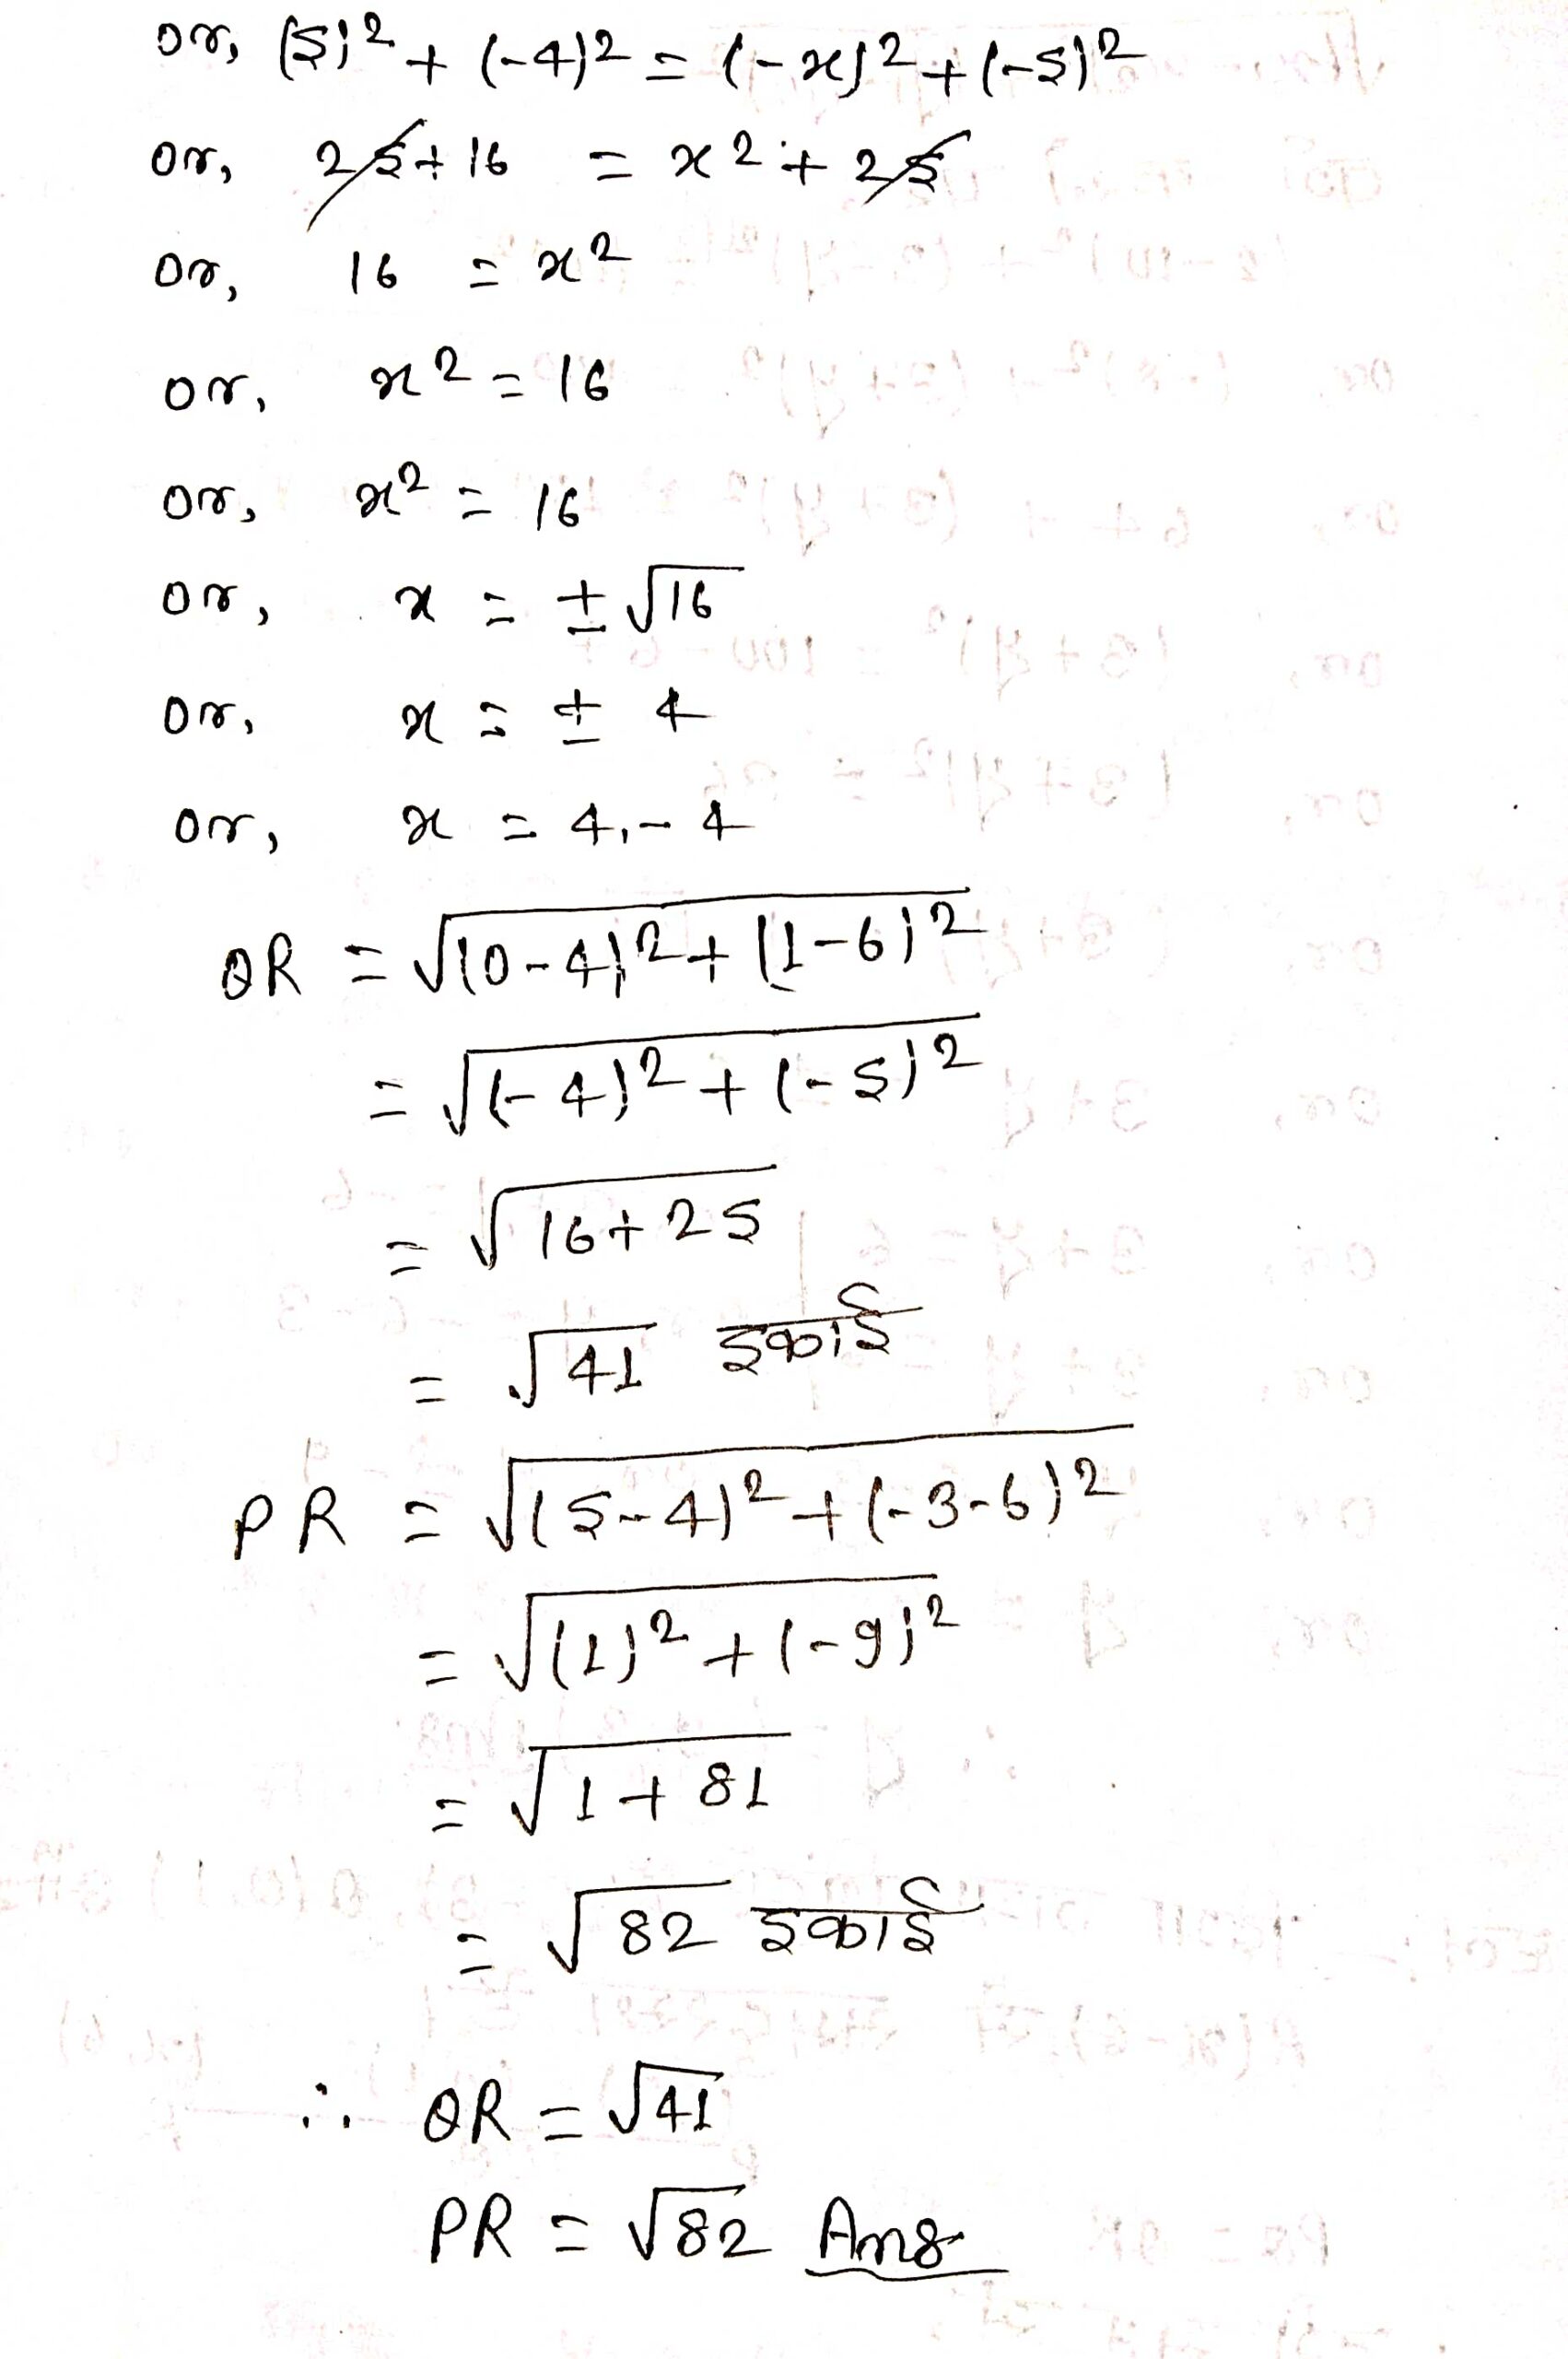 or, (5)² + (-4)² = (-x)² + (-5)²
or, 25 + 16 = x² + 25
or, 16 = x²
or, x² = 16
or, x² = 16
or, x = ± √16
or, x = ± 4
or, x = 4, - 4
QR = √(0-4)² + (1-6)²
= √(-4)² + (-5)²
= √16+25
= √41 इकाई
PR = √(5-4)² + (-3-6)²
= √(1)² + (-9)²
= √1+81
= √82 इकाई
∴ QR = √41
PR = √82 Ans